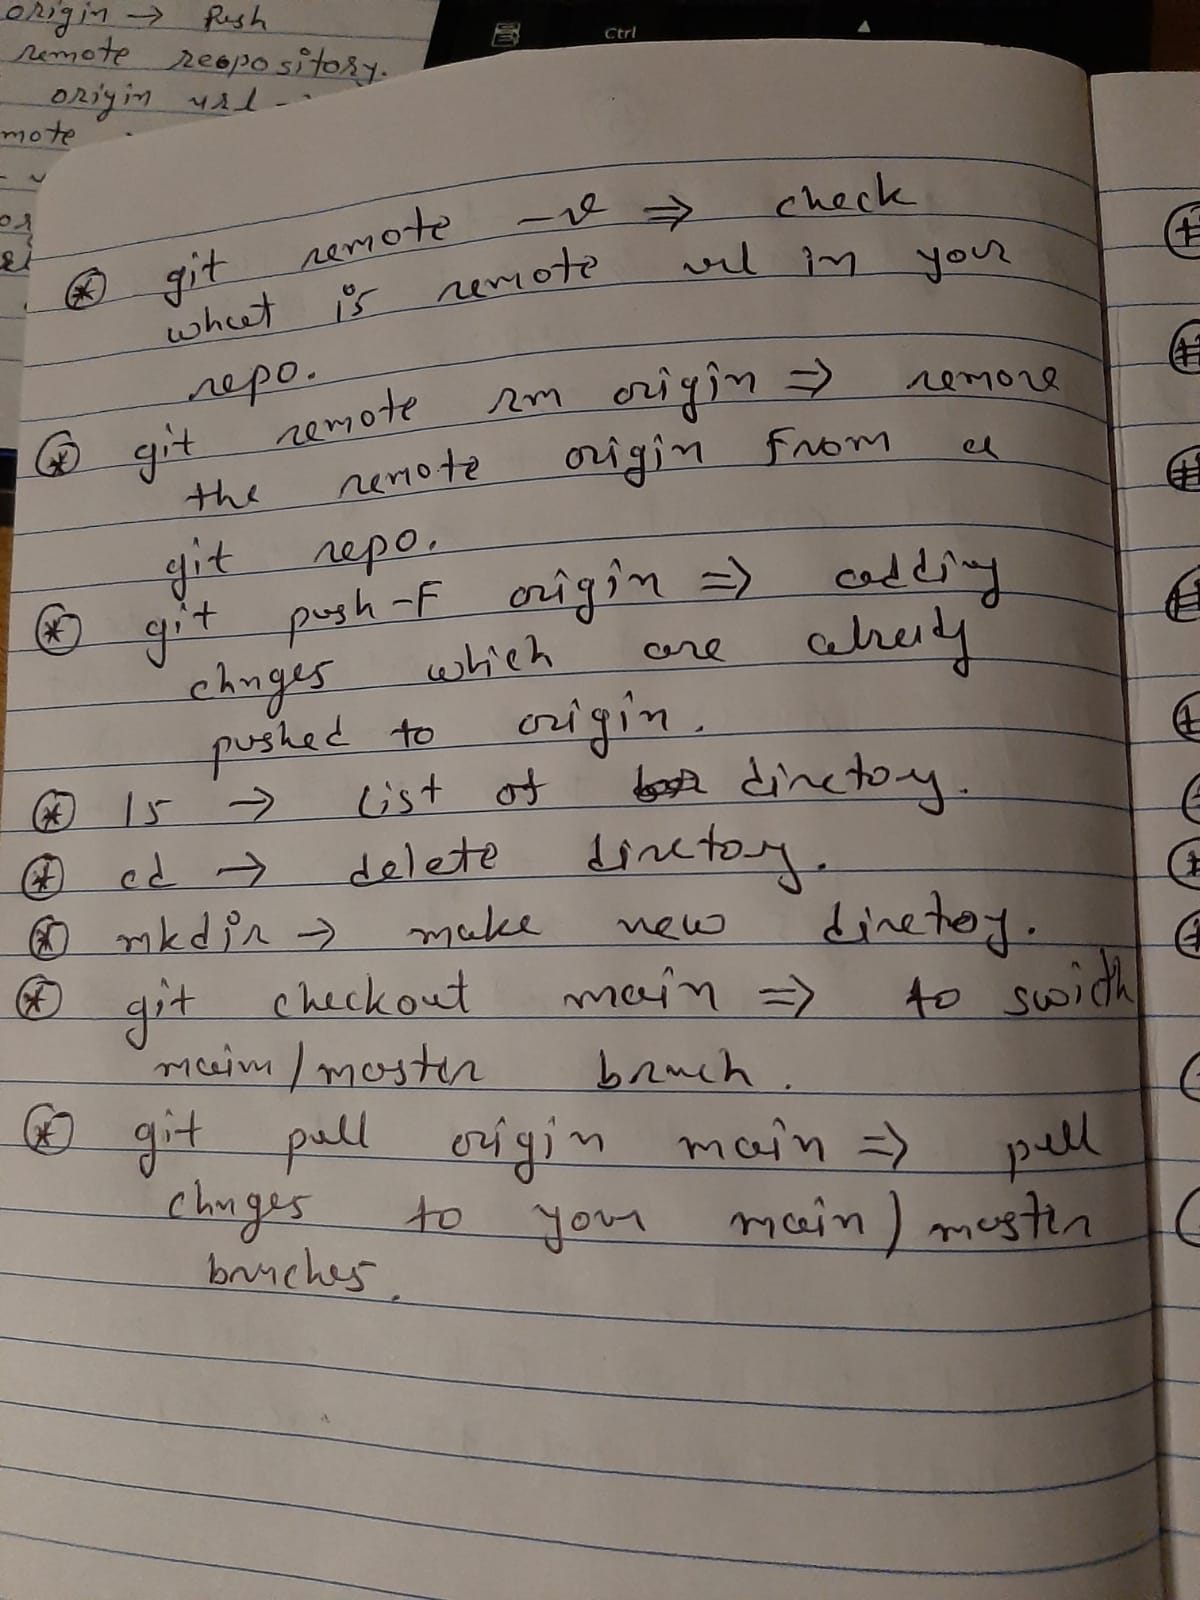 origin → Push
remote reopository.
origin url -
mote
Ctrl
git remote -v ⇒ check
what is remote url in your
repo.
git remote rm origin ⇒ remove
the remote origin from a
git repo.
git push -F origin ⇒ adding
chnges which are already
pushed to origin.
ls → list of directory.
cd → delete directory.
mkdir → make new diretroy.
git checkout main ⇒ to swicth
main/master brnch.
git pull origin main ⇒ pull
chnges to your main/master
brnches.